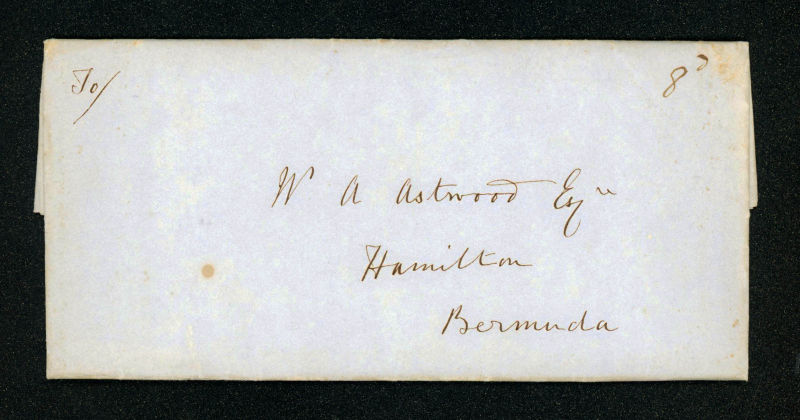 To/
8d
Wm A Astwood Esqre
Hamilton
Bermuda